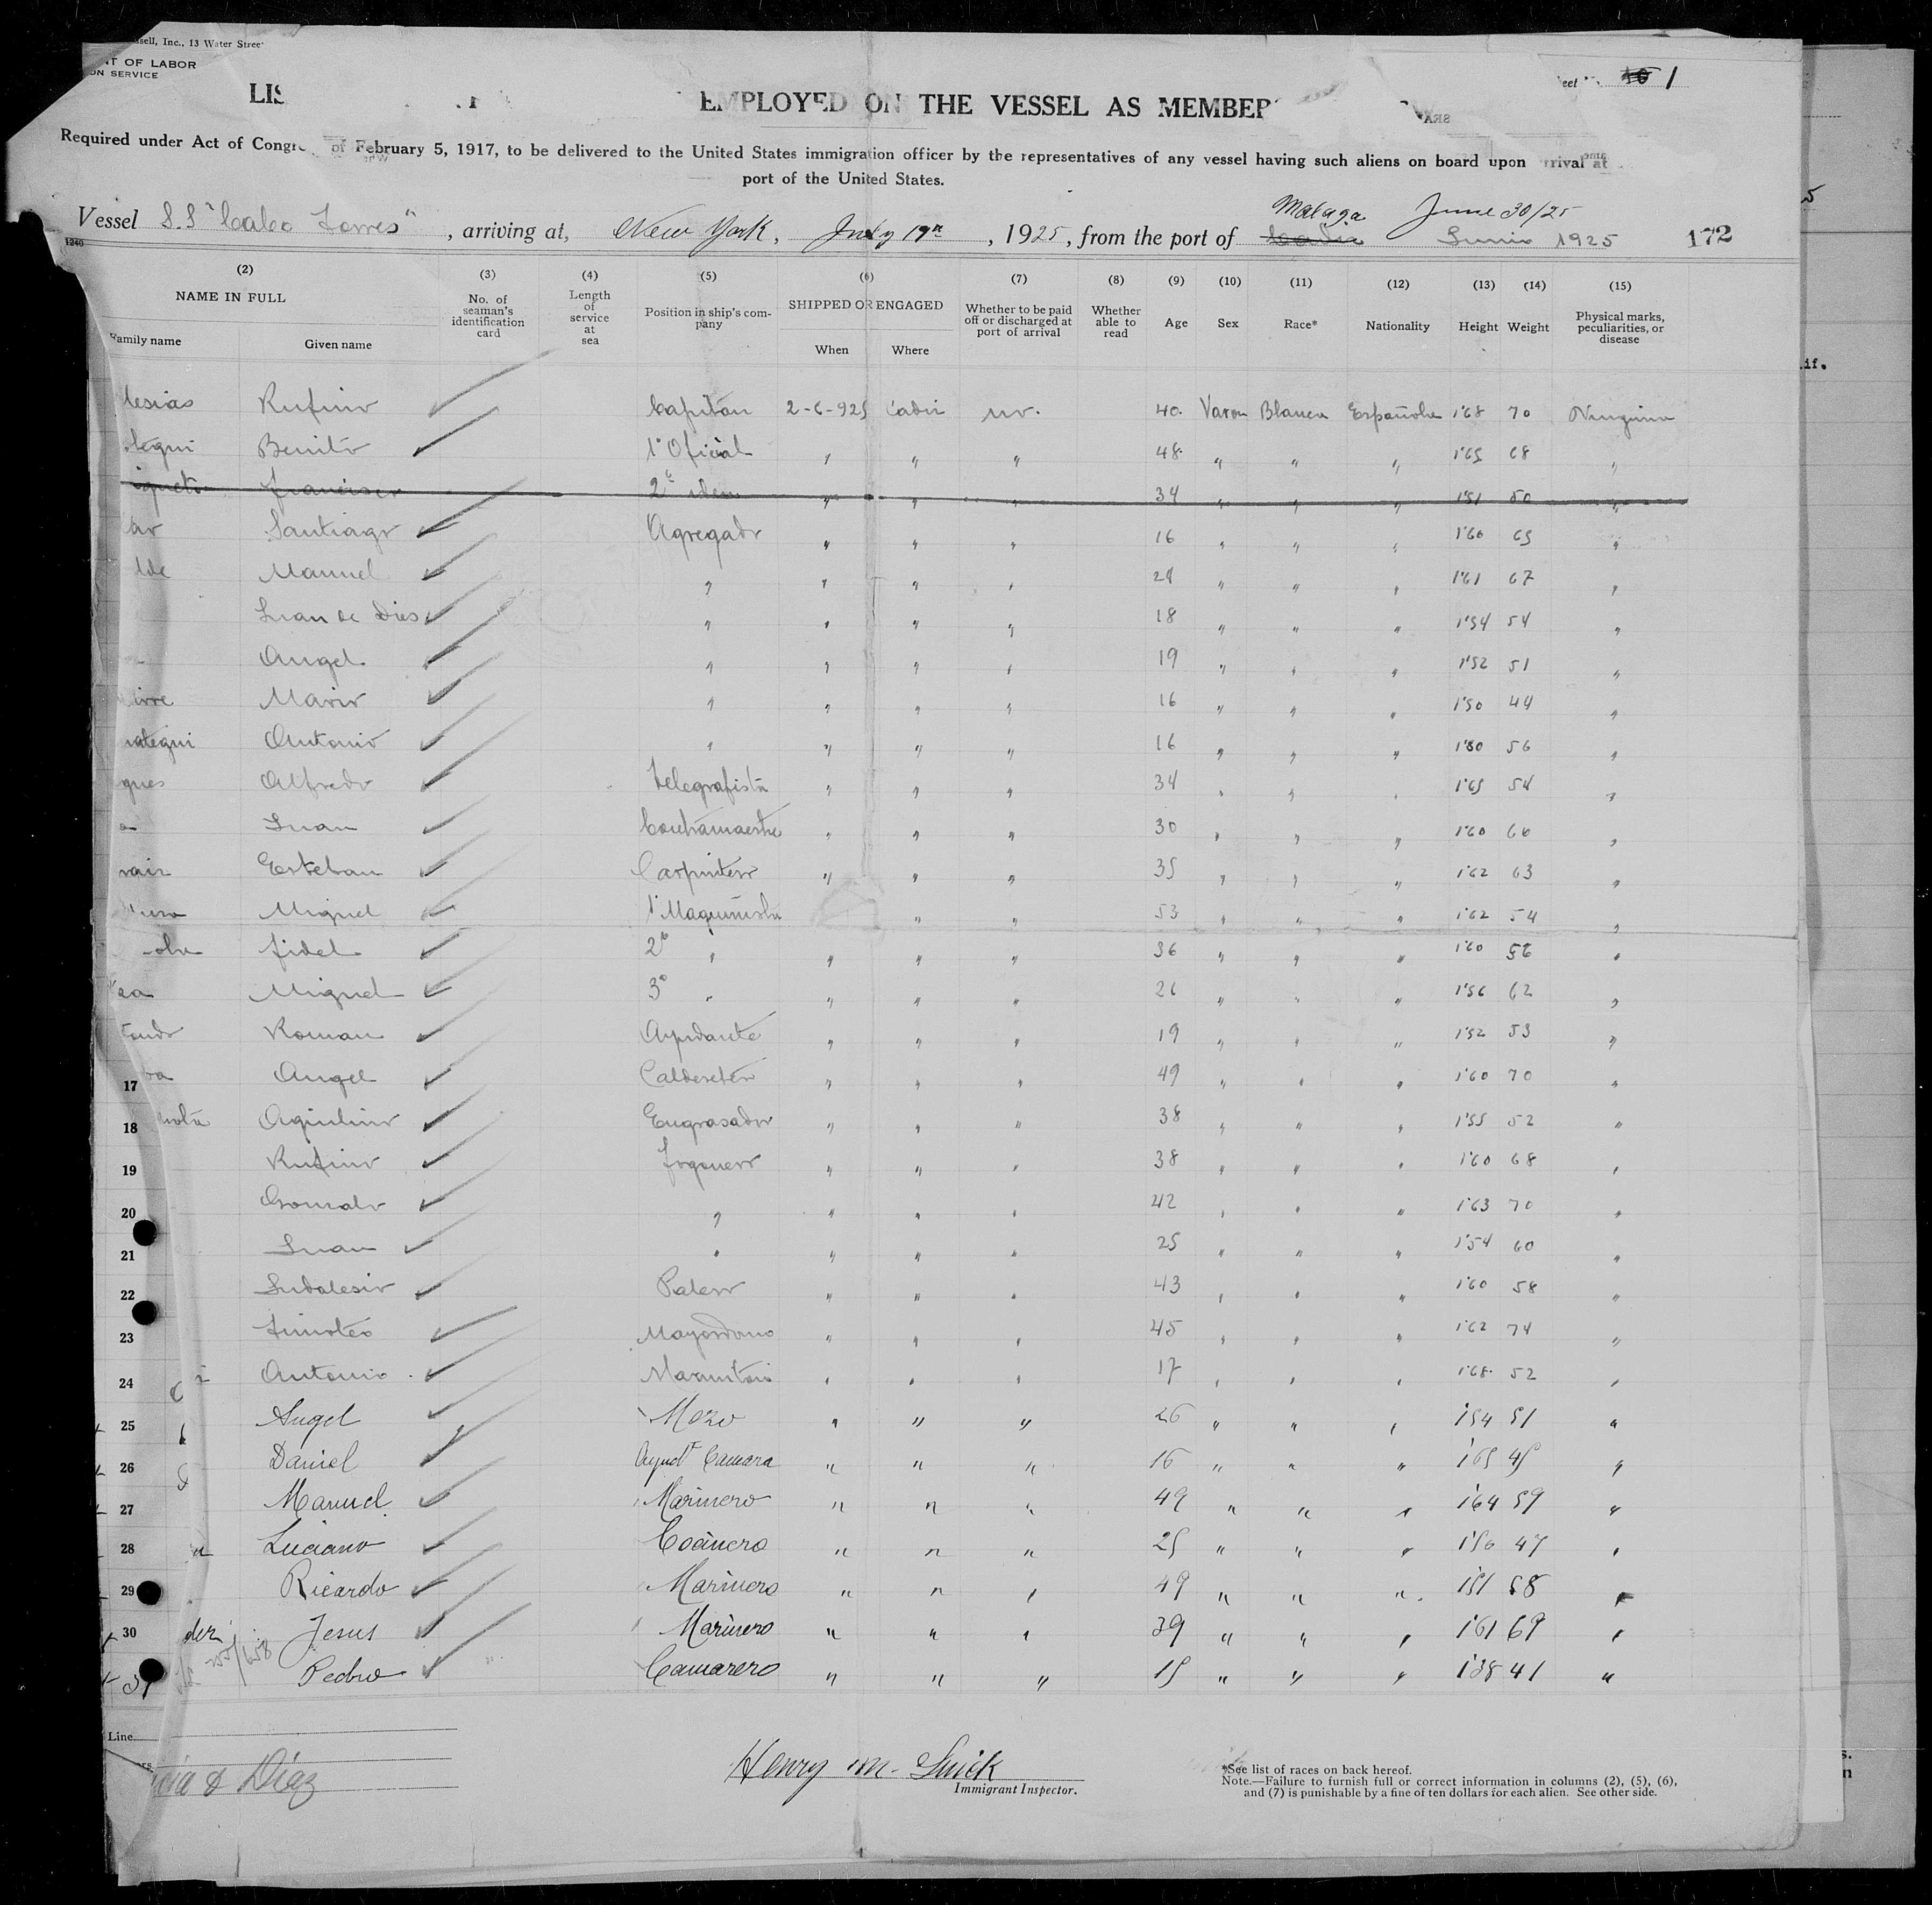 sell, Inc., 13 Water Stree
NT OF LABOR
ON SERVICE
eet 1
LIS EMPLOYED ON THE VESSEL AS MEMBER
Required under Act of Congre of February 5, 1917, to be delivered to the United States immigration officer by the representatives of any vessel having such aliens on board upon rrival at
port of the United States.
Malaga June 30/25
Vessel S.S "Cabo Torres", arriving at, New York, July 19th, 1925, from the port of Cadiz Junio 1925 172
1240
(2) (3) (4) (5) (6) (7) (8) (9) (10) (11) (12) (13) (14) (15)
NAME IN FULL No. of seaman's identification card Length of service at sea Position in ship's company SHIPPED OR ENGAGED Whether to be paid off or discharged at port of arrival Whether able to read Age Sex Race* Nationality Height Weight Physical marks, peculiarities, or disease
Family name Given name When Where
lesias Rufino Capitan 2-6-925 Cadiz no. 40. Varon Blanca Española 1'68 70 Ninguna
tegui Benito 1º Oficial " " " 48. " " " 1'65 68 "
Francisco 2º idem " " " 34 " " " 1'51 50 "
ar Santiago Agregado " " " 16 " " " 1'60 65 "
lde Manuel " " " " " " " 1'61 67 "
Juan de Dios " " " " 18 " " " 1'54 54 "
Angel " " " " 19 " " " 1'52 51 "
irre Mario " " " " 16 " " " 1'50 44 "
ategui Antonio " " " " 16 " " " 56 "
gues Alfredo Telegrafista " " " 34 " " " 1'65 54 "
Juan Contramaestre " " " 30 " " " 1'60 66 "
Esteban Carpintero " " " 35 " " " 1'62 63 "
Miguel 1º Maquinista " " 53 " " " 1'62 54 "
Fidel 2º " " " " 36 " " " 1'60 56 "
Miguel 3º " " " " 26 " " " 1'56 62 "
Roman Ayudante " " " 19 " " " 1'52 53 "
17 Angel Calderetero " " " 49 " " " 1'60 70 "
18 Aquilino Engrasador " " " 38 " " " 1'55 52 "
19 Rufino Fogonero " " " 38 " " " 1'60 68 "
20 Gonzalo " " " " 42 " " " 1'63 70 "
21 Juan " " " " 25 " " " 1'54 60 "
22 Indalesio Palero " " " 43 " " " 1'60 58 "
23 Timoteo Mayordomo " " " 45 " " " 1'62 74 "
24 Antonio Marmiton " " " 17 " " " 1'68 52 "
25 Angel Mozo " " " 26 " " " 1'54 51 "
26 Daniel Ayudte Camara " " " 16 " " " 1'65 45 "
27 Manuel Marinero " " " 49 " " " 1'64 59 "
28 Luciano Cocinero " " " 25 " " " 1'56 47 "
29 Ricardo Marinero " " " 49 " " " 1'51 58 "
30 dez Jesus Marinero " " " 39 " " " 1'61 69 "
31 Pedro Camarero " " " 15 " " " 1'38 41 "
Line
cia & Diaz
Henry M.
Immigrant Inspector.
*See list of races on back hereof.
Note.—Failure to furnish full or correct information in columns (2), (5), (6),
and (7) is punishable by a fine of ten dollars for each alien. See other side.